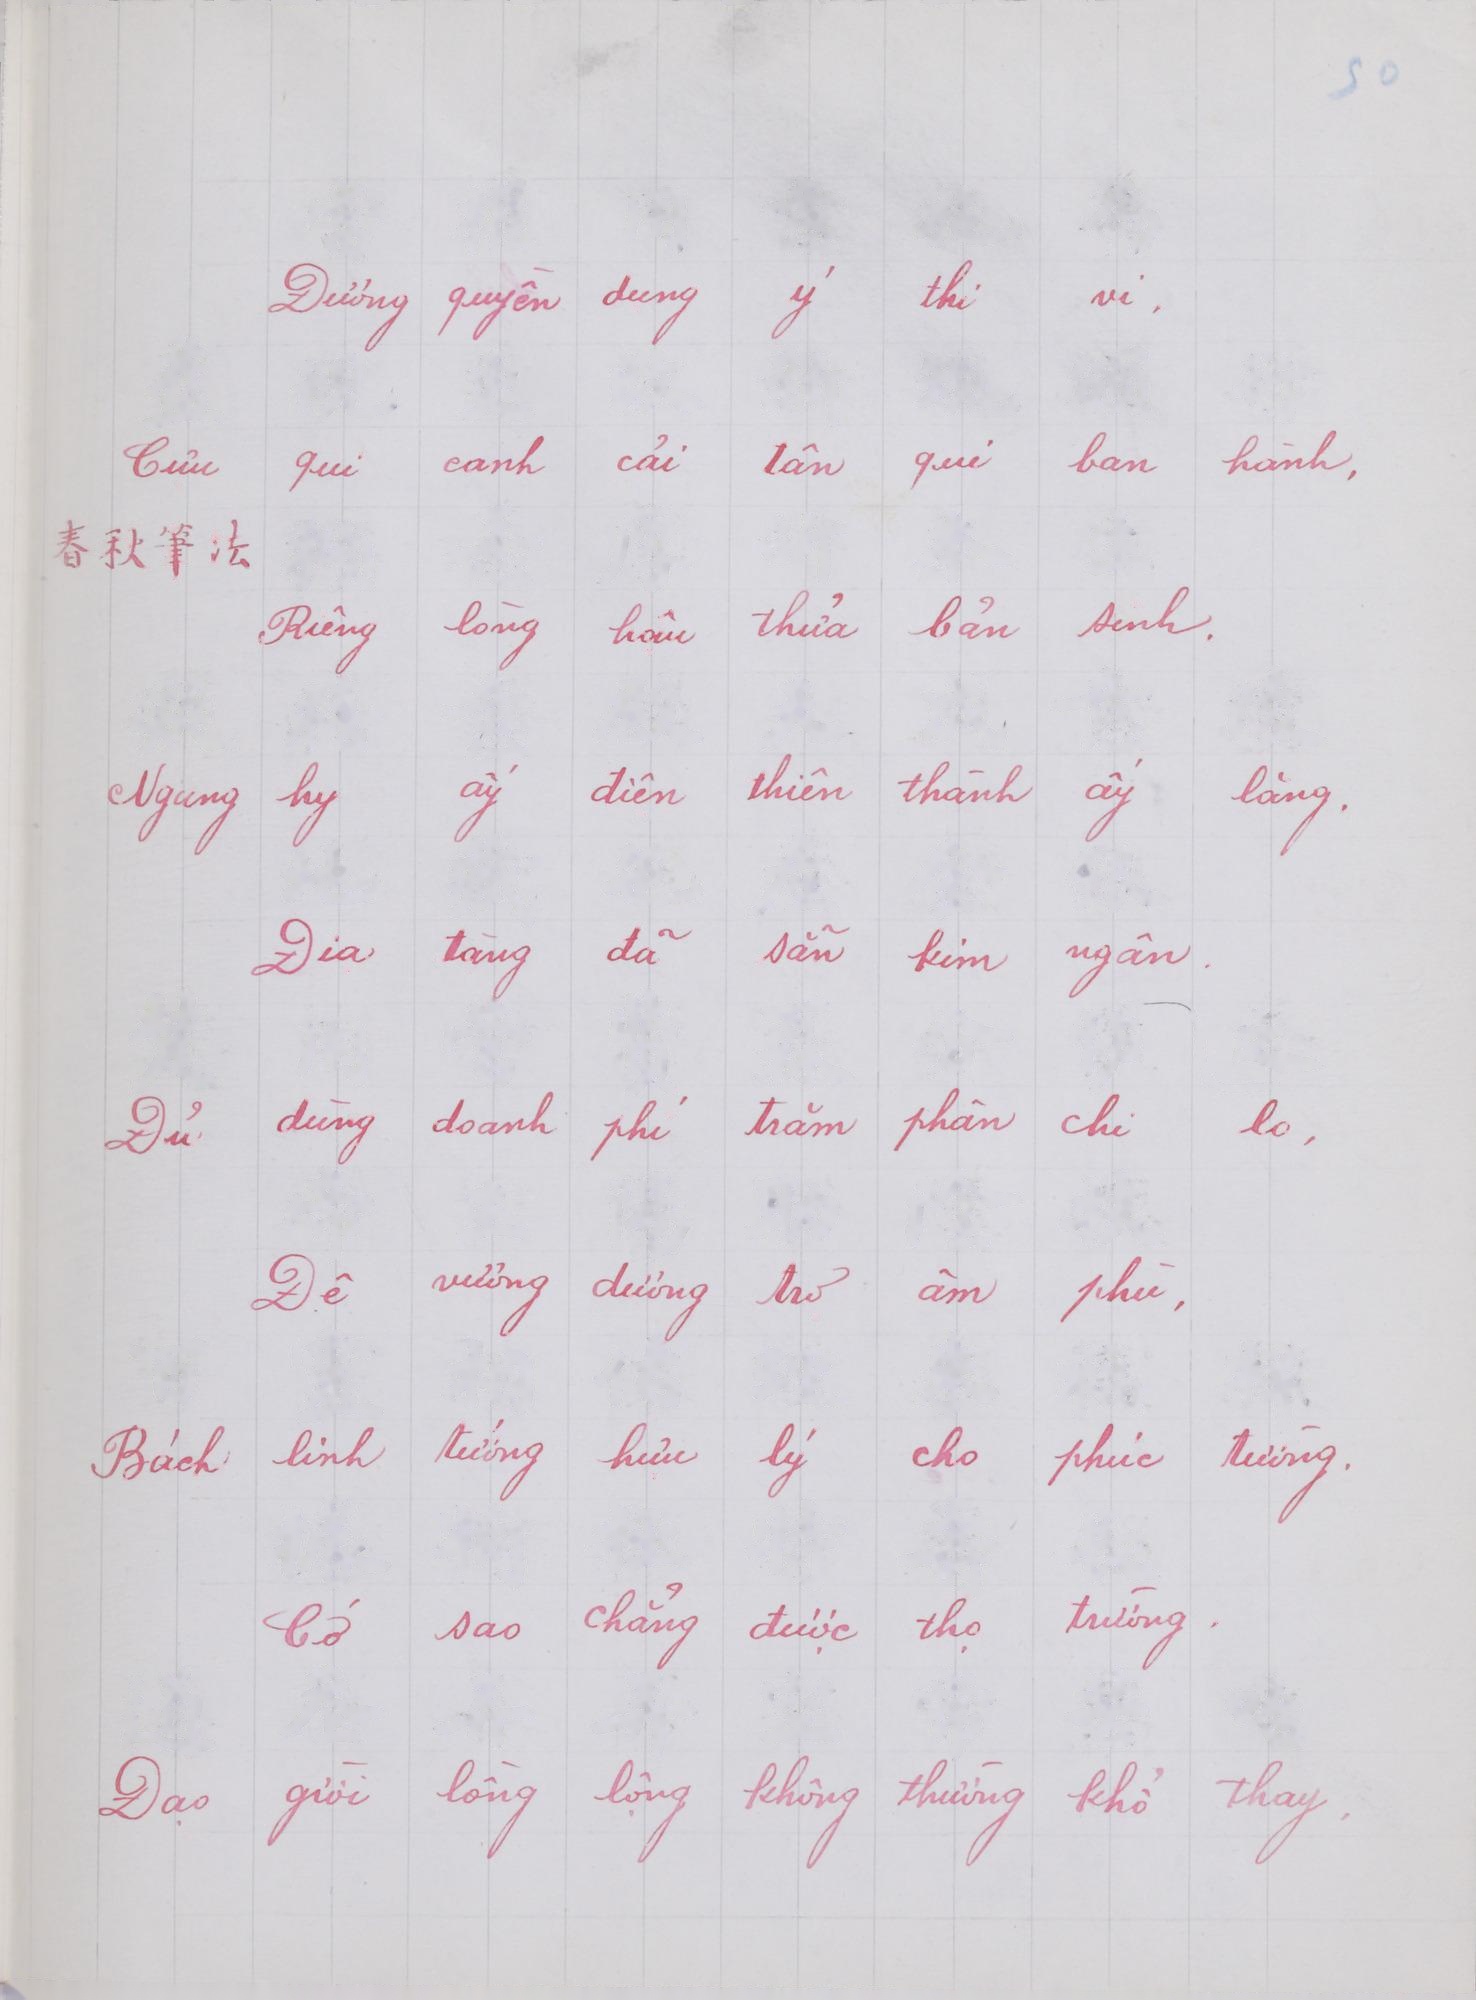 50
Đương quyền dung ý thi vi,
Cửu qui canh cải tân qui ban hành,
春秋筆法
Riêng lòng hậu thửa bản sinh.
Ngung hy ấy điện thiên thành ấy lăng.
Địa tàng đã sẵn kim ngân.
Đủ dùng doanh phí trăm phần chi lo,
Đê vương dương trở âm phù,
Bách linh tướng hữu lý cho phúc tường.
Cớ sao chẳng được thọ trường.
Đạo giời lồng lộng không thường khổ thay,